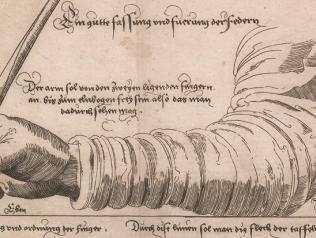 Ein gutte fassung vnd fürung der federn
Der arm sol von den zweyen ligenden fingern
an, bis zum elnbogen frey sein also das man
dadurch sehen mag.
Eben
g vnd ordnung der finger. Durch dise linien sol man die fleck der taffel